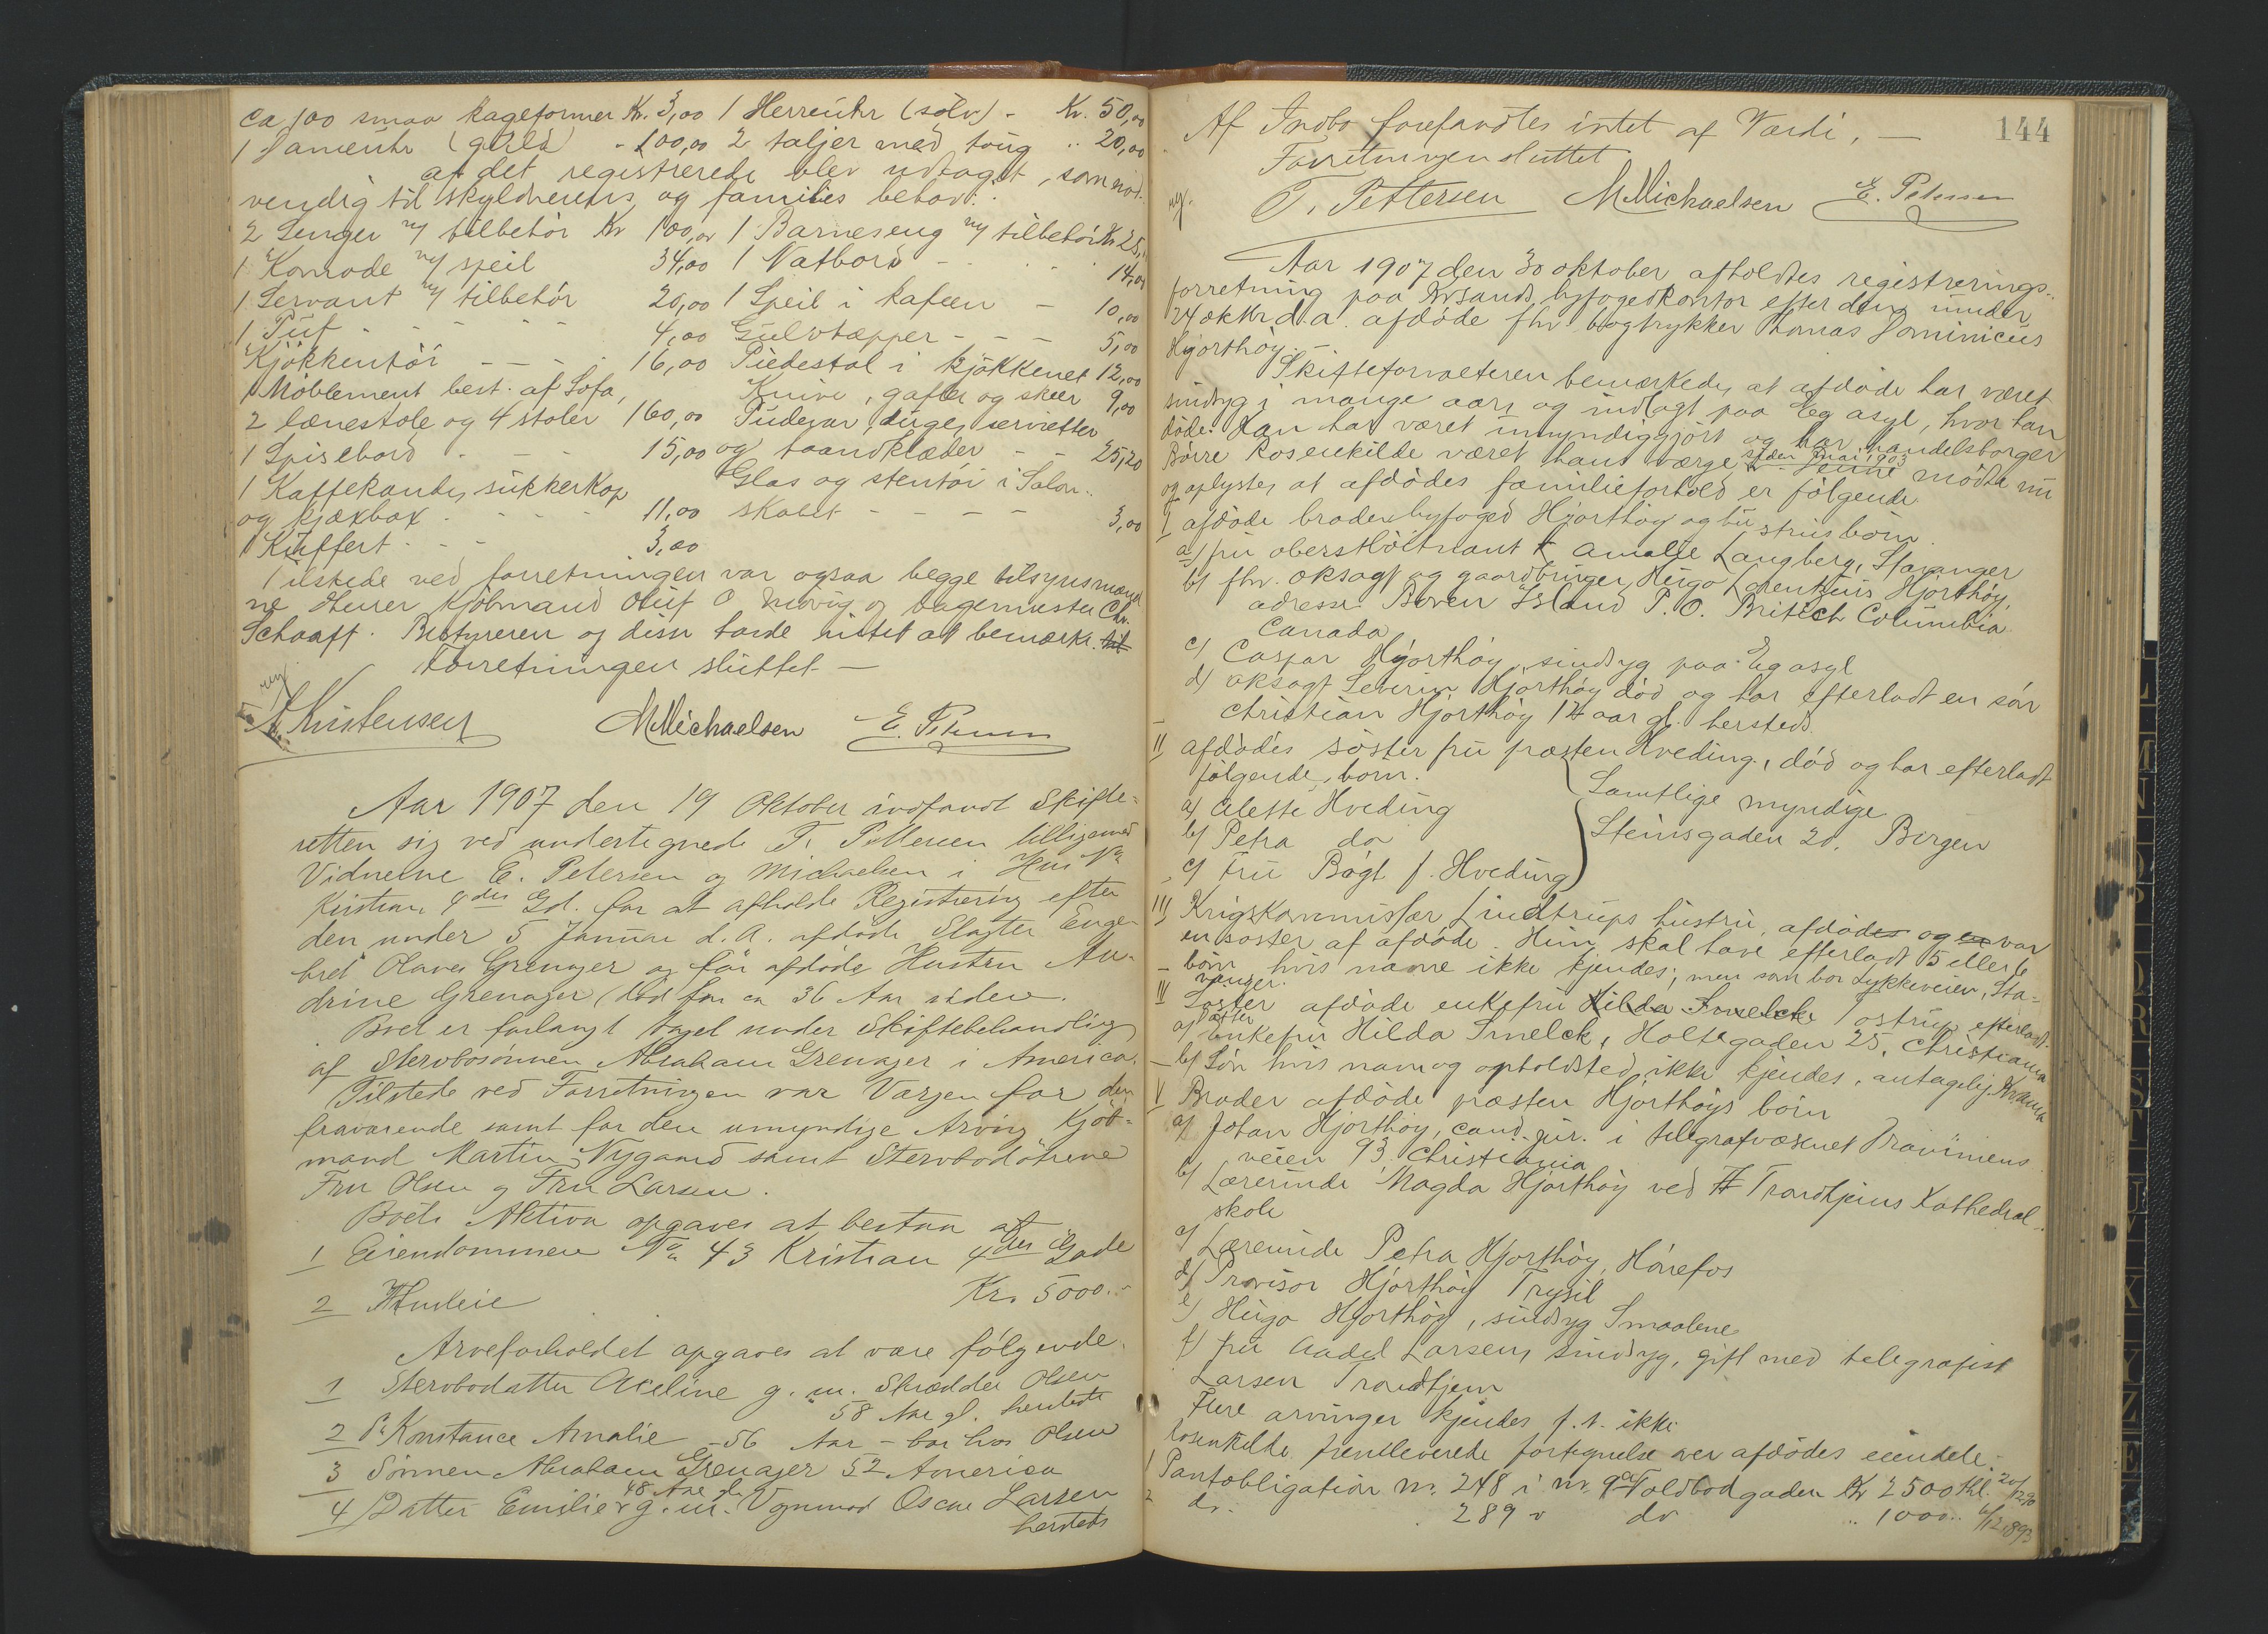 ca 100 smaa kageformer Kr. 3,00 1 Herreuhr (sølv) - Kr. 50,00
1 Dameuhr (guld) - 100,00 2 taljer med toug .. 20,00
af det registrerede blev udtaget, som nød-
vendig til skyldnerens og families behov:
2 Senger m/ tilbehör Kr 100,00 1 Barneseng m/ tilbehör Kr 25,
1 Komode m/ speil 34,00 1 Natbord - 14,00
1 Servant m/ tilbehör 20,00 1 Speil i kafeen - 10,00
1 Puf - - - - 4,00 Gulvtæpper - - - 5,00
Kjøkkentöi - - - 16,00 Piedestal i kjøkkenet 12,00
1 Möblement best. af Sofa, Knive, gafler og skeer 9,00
2 lænestole og 4 stoler 160,00 Pudevar, duge, servietter
1 Spisebord - - - 15,00 og haandklæder - - 25,20
1 Kaffekande, sukkerkop Glas og stentöi i Salon-
og kjæxbox - - - 11,00 skabet - - - - 3,00
1 Kuffert - - - 3,00
Tilstede ved forretningen var ogsaa begge tilsynsmænd
ne Herrer Kjöbmand Oluf O og bagermester Chr.
Schaaft. Bestyreren og disse havde intet at bemærke. til
Forretningen sluttet -
Kristensen MMichaelsen E. Petersen
Aar 1907 den 19 Oktober indfandt Skifte-
retten sig ved undertegnede T. Pettersen tilligemed
Vidnerne E. Petersen og Michaelsen i Hus No
Kristian 4des Gd. for at afholde Registrering efter
den under 5 Januar d. A. afdøde Slagter Enge-
bret Olaves Grenager og før afdøde Hustru An-
drine Grenager (død for ca 36 Aar siden.
Boet er forlangt taget under Skiftebehandling
af Stervbosønnen Abraham Grenager i America.
Tilstede ved Forretningen var Værgen for den
fraværende samt for den umyndige Arving Kjöb-
mand Martin Nygaard samt Stervbodøtrene
Fru Olsen og Fru Larsen.
Boets Aktiva opgaves at bestaa af
1 Eiendommen No 43 Kristian 4des Gade
Kr. 5000.-
2 Husleie
Arveforholdet opgaves at være følgende.
1 Stervbodatter Aceline g. m. Skrædder Olsen
58 Aar gl. herstedt
2 Do Konstance Amalie - 56 Aar - bor hos Olsen
3 Sønnen Abraham Grenager 52 America
48 Aar gl.
4 Datter Emilie g. m. Vognmand Oscar Larsen
hersteds
144
Af Indbo forefandtes intet af Værdi. -
Forretningen sluttet
T. Pettersen MMichaelsen E. Petersen
Aar 1907 den 30 oktober afholdtes registrerings-
forretning paa Krsands byfogedkontor efter den under
24 oktbr d.a. afdöde fhv. bogtrykker Thomas Dominicus
Hjorthöy. -
Skifteforvalteren bemærkede, at afdöde har været
sindsyg i mange aar, og indlagt paa Eg asyl, hvor han
döde. Han har været umyndiggjört og har handelsborger
Börre Rosenkilde været hans værge siden mai 1903. Denne mödte nu
og oplyste, at afdödes familieforhold er fölgende
I afdöde broder byfoged Hjorthöy og hustrus börn
a) fru oberstlöitnant Amalie Langberg, Stavanger
b) fhv. oksagf. og gaardbruger Hugo Laurentzius Hjorthöy,
adresse Boven Island P.O. British Columbia
Canada
c) Caspar Hjorthöy, sindsyg paa Eg asyl
d) oksagf Severin Hjorthöy död og har efterladt en sön
Christian Hjorthöy 14 aar gl. hersteds
II afdödes söster fru præsten Hveding, död og har efterladt
fölgende börn.
a) Alette Hveding
b) Petra do
c) Fru Bögt f. Hveding
Samtlige myndige
Steinsgaden 20. Bergen
III Krigskommissær Lindtrups hustru, afdödes og er var
en söster af afdöde. Hun skal have efterladt 5 eller 6
börn hvis navne ikke kjendes; men som bor Lykkeveien, Sta-
vanger.
IV Söster afdöde enkefru Hilda Irnelck Tostrup efterladt
a) Datter Enkefru Hilda Irnelck, Holtegaden 25, Christiania
b) Sön hvis navn og opholdsted ikke kjendes, antagelig Kr.ania
V Broder afdöde præsten Hjorthöys börn
a) Johan Hjorthöy, cand. jur. i telegrafvæsenet Drammens-
veien 93 Christiania
b) Lærerinde Magda Hjorthöy ved Trondhjems Kathedral-
skole
c) Lærerinde Petra Hjorthöy, Hönefos
d) Provisor Hjorthöy Trysil
e) Hugo Hjorthöy, sindsyg Smaalene
f) fru Aadel Larsen, sindsyg, gift med telegrafist
Larsen Trondhjem
Flere arvinger kjendes f.t. ikke.
Rosenkilde fremleverede fortegnelse over afdödes eiendele.
1 Pantobligation nr. 248 i nr. 9a Toldbodgaden Kr 2500 thl. 20/12 90
2 do. 289 v do .. 1000.. 6/12 1893